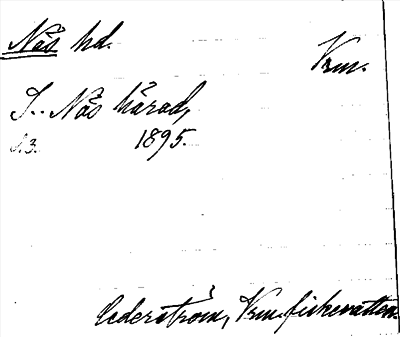 Näs hd.
Vrm.
I.. Näs härad,
s.3. 1895.
Cederström, Vrm. fiskevatten.